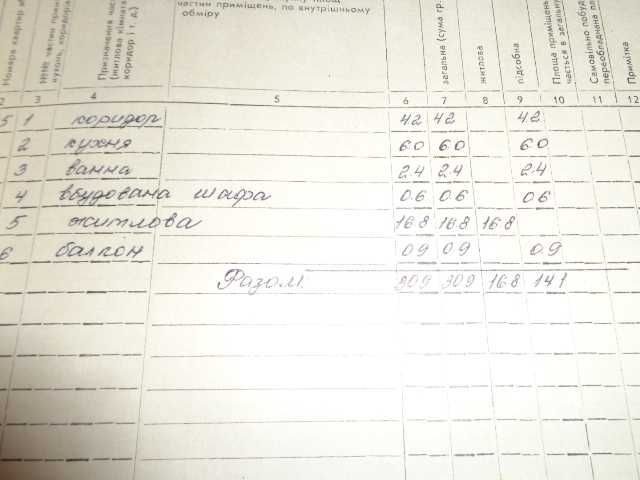 Номера квартир
частин приміщень, по внутрішньому
обміру
Призначення
(житлова кімната
коридор і т. д.)
загальна (сума гр.
житлова
підсобна
Площа приміщень
чається в загальну
Самовільно
переобладнана
Примітка
2 3 4 5 6 7 8 9 10 11 12
5 1 коридор 4.2 4.2 4.2
2 кухня 6.0 6.0 6.0
3 ванна 2.4 2.4 2.4
4 вбудована шафа 0.6 0.6 0.6
5 житлова 16.8 16.8 16.8
6 балкон 0.9 0.9 0.9
Разом 30.9 30.9 16.8 14.1